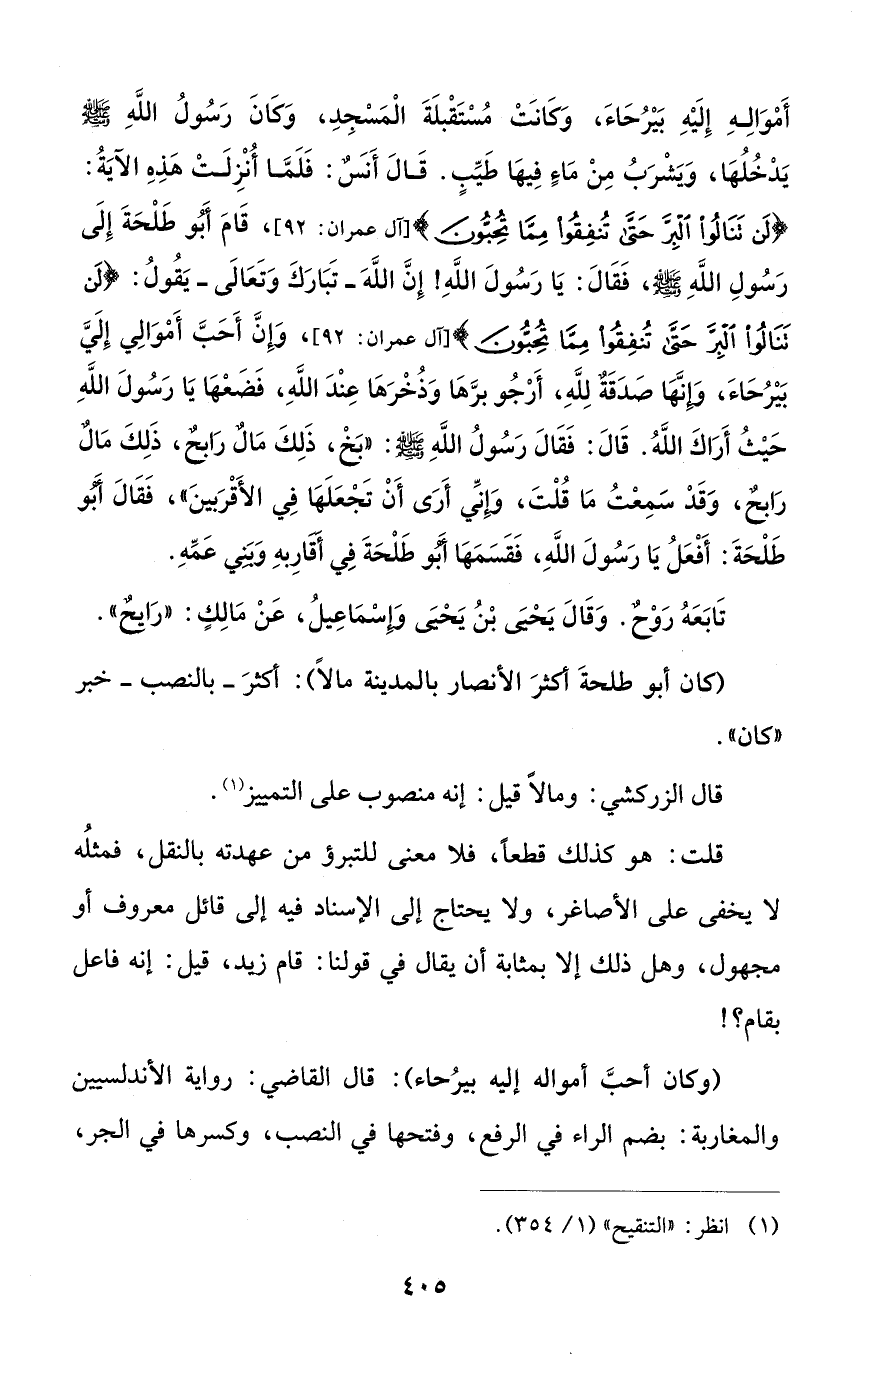 أَمْوَالِهِ إِلَيْهِ بَيْرُحَاءَ، وَكَانَتْ مُسْتَقْبِلَةَ الْمَسْجِدِ، وَكَانَ رَسُولُ اللَّهِ ﷺ
يَدْخُلُهَا، وَيَشْرَبُ مِنْ مَاءٍ فِيهَا طَيِّبٍ. قَالَ أَنَسٌ: فَلَمَّا أُنْزِلَتْ هَذِهِ الآيَةُ:
﴿لَن نَنَالُواْ ٱلْبِرَّ حَتَّى تُنفِقُواْ مِمَّا تُحِبُّونَ﴾[آل عمران: ٩٢]، قَامَ أَبُو طَلْحَةَ إِلَى
رَسُولِ اللَّهِ ﷺ، فَقَالَ: يَا رَسُولَ اللَّهِ! إِنَّ اللَّهَ ـ تَبَارَكَ وَتَعَالَى ـ يَقُولُ: ﴿لَن
نَنَالُواْ ٱلْبِرَّ حَتَّى تُنفِقُواْ مِمَّا تُحِبُّونَ﴾[آل عمران: ٩٢]، وَإِنَّ أَحَبَّ أَمْوَالِي إِلَيَّ
بَيْرُحَاءَ، وَإِنَّهَا صَدَقَةٌ لِلَّهِ، أَرْجُو بِرَّهَا وَذُخْرَهَا عِنْدَ اللَّهِ، فَضَعْهَا يَا رَسُولَ اللَّهِ
حَيْثُ أَرَاكَ اللَّهُ. قَالَ: فَقَالَ رَسُولُ اللَّهِ ﷺ: «بَخْ، ذَلِكَ مَالٌ رَابِحٌ، ذَلِكَ مَالٌ
رَابِحٌ، وَقَدْ سَمِعْتُ مَا قُلْتَ، وَإِنِّي أَرَى أَنْ تَجْعَلَهَا فِي الأَقْرَبِينَ»، فَقَالَ أَبُو
طَلْحَةَ: أَفْعَلُ يَا رَسُولَ اللَّهِ، فَقَسَمَهَا أَبُو طَلْحَةَ فِي أَقَارِبِهِ وَبَنِي عَمِّهِ.
تَابَعَهُ رَوْحٌ. وَقَالَ يَحْيَى بْنُ يَحْيَى وَإِسْمَاعِيلُ، عَنْ مَالِكٍ: «رَايِحٌ».
(كان أبو طلحةَ أكثرَ الأنصار بالمدينة مالاً): أكثرَ ـ بالنصب ـ خبر
«كان».
قال الزركشي: ومالاً قيل: إنه منصوب على التمييز(١).
قلت: هو كذلك قطعاً، فلا معنى للتبرؤ من عهدته بالنقل، فمثلُه
لا يخفى على الأصاغر، ولا يحتاج إلى الإسناد فيه إلى قائل معروف أو
مجهول، وهل ذلك إلا بمثابة أن يقال في قولنا: قام زيد، قيل: إنه فاعل
بقام؟!
(وكان أحبَّ أمواله إليه بيرُحاء): قال القاضي: رواية الأندلسيين
والمغاربة: بضم الراء في الرفع، وفتحها في النصب، وكسرها في الجر،
(١) انظر: «التنقيح» (١/ ٣٥٤).
٤٠٥